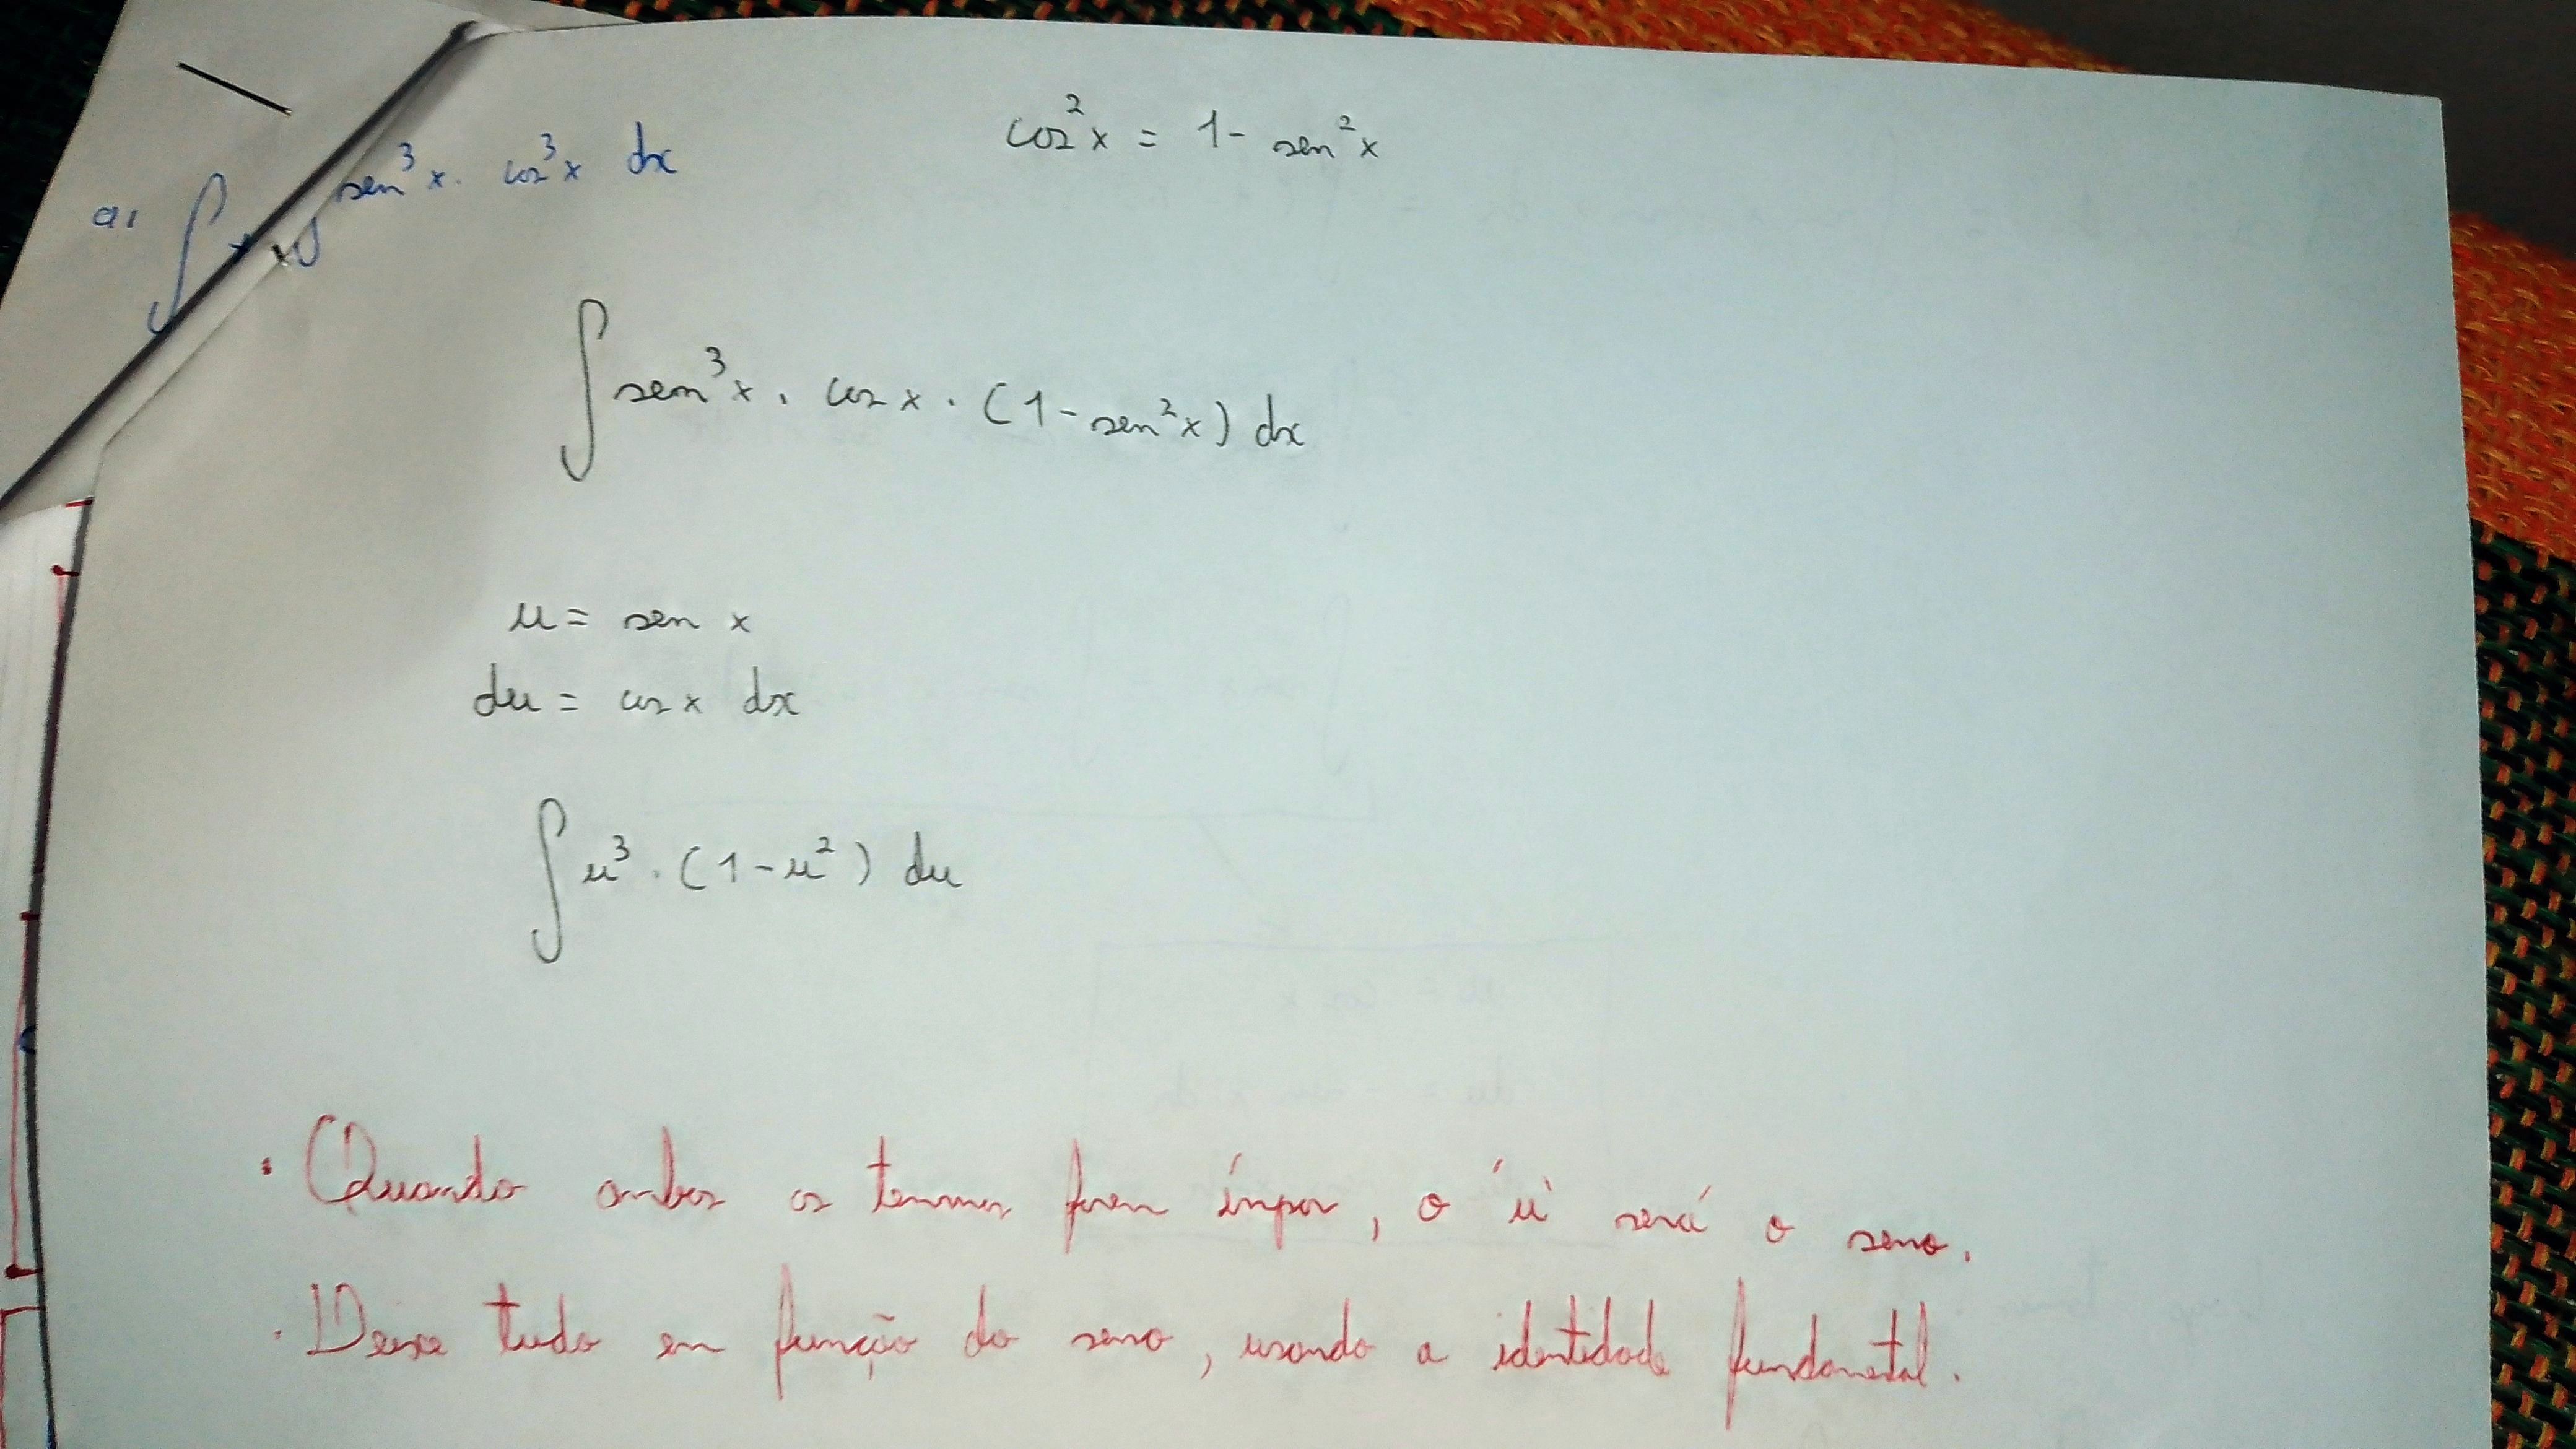 cos²x = 1 - sen²x
a) ∫ sen³x · cos³x dx
∫ sen³x · cos x · (1 - sen²x) dx
u = sen x
du = cos x dx
∫ u³ · (1 - u²) du
· Quando ambos os termos forem ímpar, o 'u' será o seno.
· Deixe tudo em função do seno, usando a identidade fundamental.